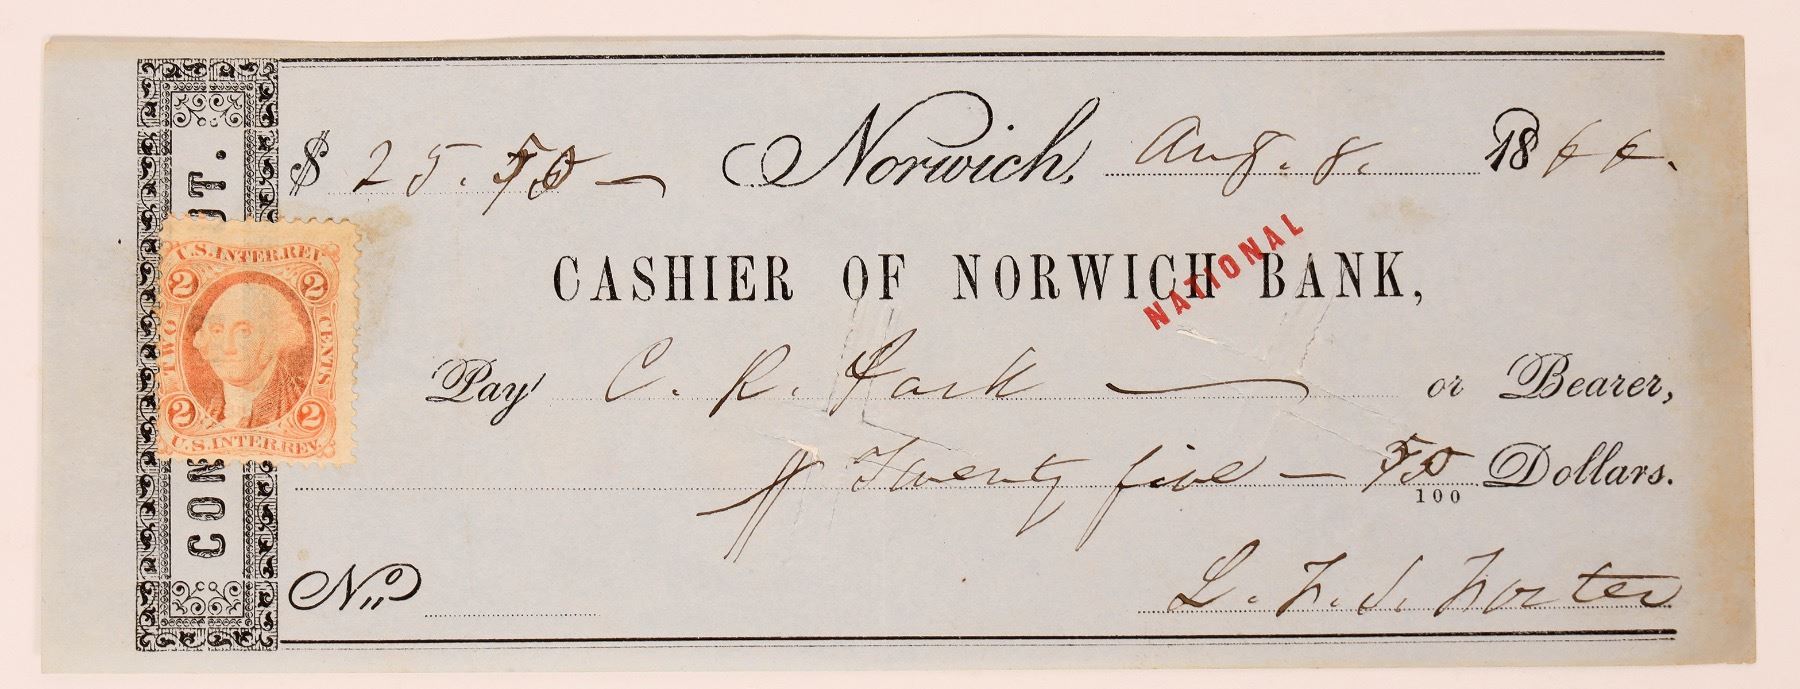 $ 25.50 — Norwich, Aug. 8. 1866.
CASHIER OF NORWICH BANK,
NATIONAL
Pay C. R. — or Bearer,
Twenty five — 50/100 Dollars.
No.
L. F. S. Foster
CON CT.
U.S. INTER. REV.
2 2
TWO CENTS
2 2
U.S. INTER. REV.